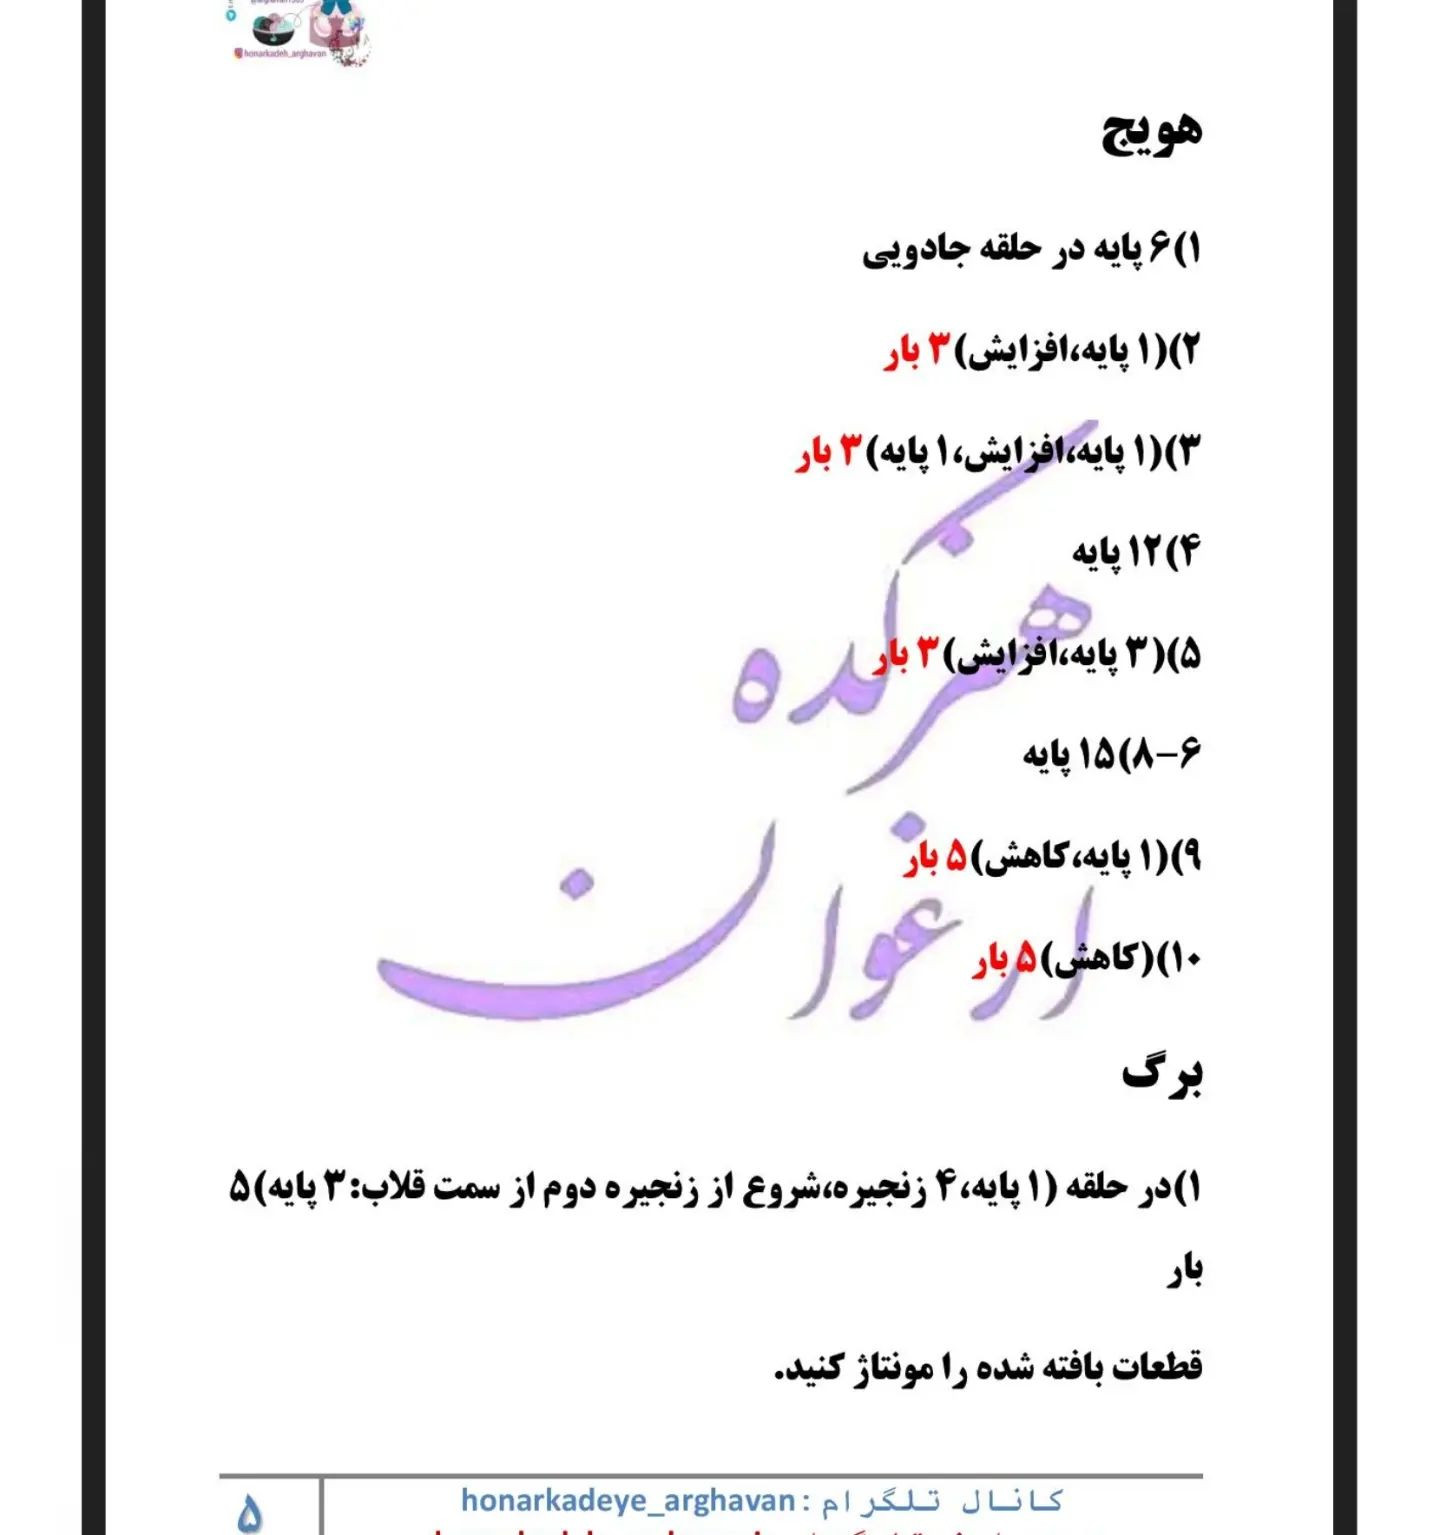 honarkadeh_arghavan
هویج
۱)۶ پایه در حلقه جادویی
۲)(۱ پایه،افزایش)۳ بار
۳)(۱ پایه،افزایش،۱ پایه)۳ بار
۴)۱۲ پایه
۵)(۳ پایه،افزایش)۳ بار
۶-۸)۱۵ پایه
۹)(۱ پایه،کاهش)۵ بار
۱۰)(کاهش)۵ بار
هنرکده
ارغوان
برگ
۱)در حلقه (۱ پایه،۴ زنجیره،شروع از زنجیره دوم از سمت قلاب:۳ پایه)۵
بار
قطعات بافته شده را مونتاژ کنید.
کانال تلگرام :honarkadeye_arghavan
۵